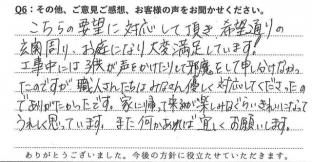 Q6：その他、ご意見ご感想、お客様の声をお聞かせください。
こちらの要望に対応して頂き希望通りの
玄関周り、お庭になり大変満足しています!
工事中には子供が声をかけたりして邪魔をして申し訳なかっ
たのですが職人さんたちはみなさん優しく対応してくださったの
でありがたかったです。家に帰って来るのが楽しみなくらいきれいになって
うれしく思っています。また何かあれば宜しくお願いします。
ありがとうございました。今後の方針に役立たせていただきます。